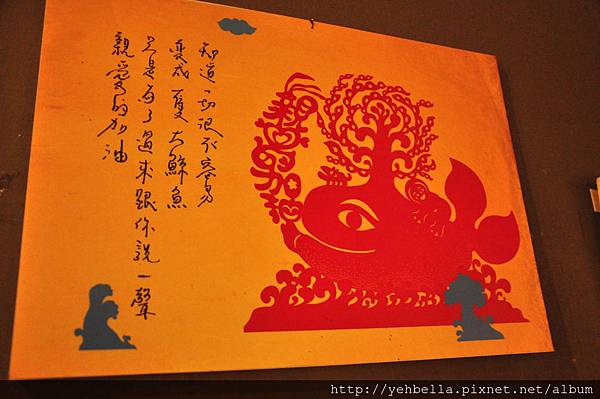 知道一切很不容易
變成一隻大鯨魚
只是為了過來跟你說一聲
親愛的加油
親愛的加油
http://yehbella.pixnet.net/album